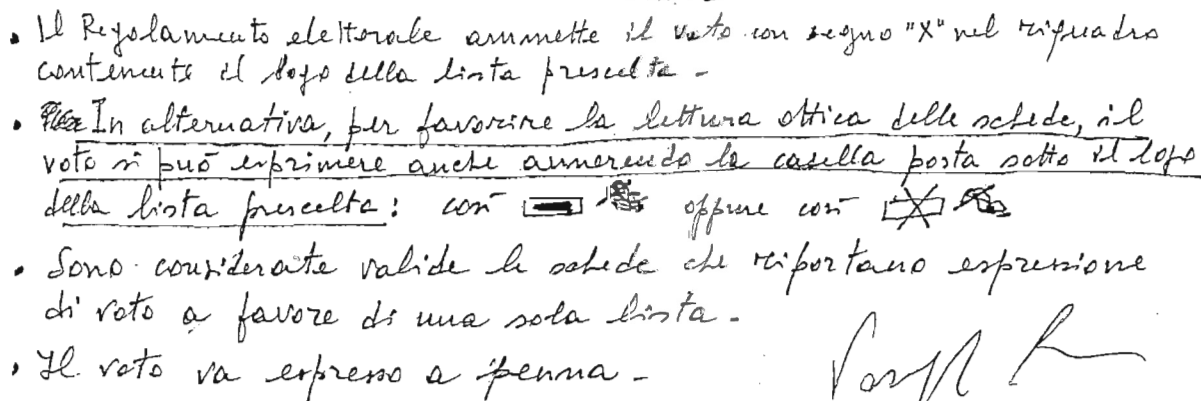 • Il Regolamento elettorale ammette il voto con segno "X" nel riquadro
contenente il logo della lista prescelta -
• In alternativa, per favorire la lettura ottica delle schede, il
voto si può esprimere anche annerendo la casella posta sotto il logo
della lista prescelta: così oppure così
• Sono considerate valide le schede che riportano espressione
di voto a favore di una sola lista -
• Il voto va espresso a penna -